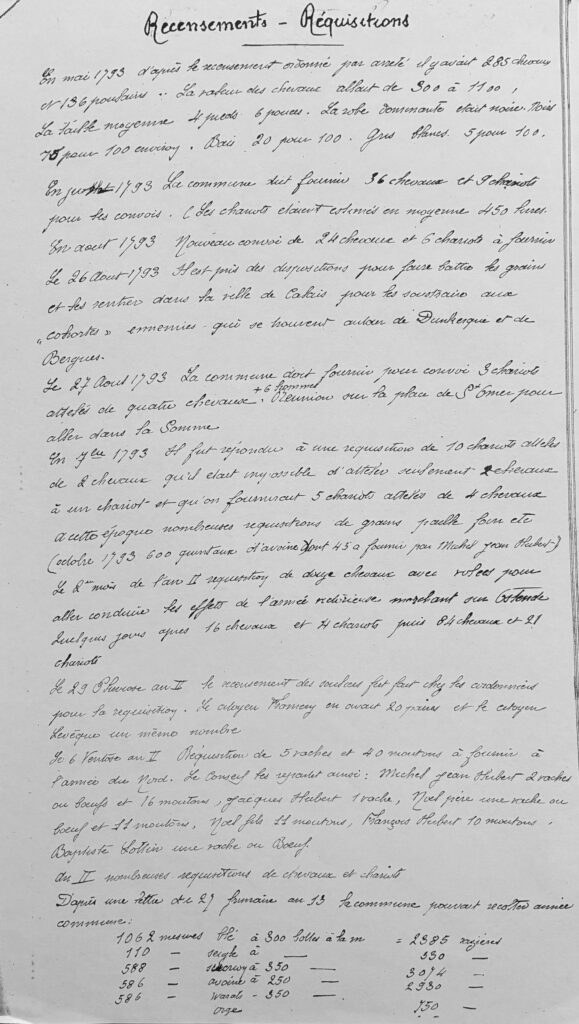 Recensements - Réquisitions
En mai 1793 d'après le recensement ordonné par arreté il y avait 285 chevaux
et 136 poulains .. La valeur des chevaux allait de 300 à 1100,
La taille moyenne 4 pieds 6 pouces. La robe dominante était noire. Noirs
75 pour 100 environ. Bais 20 pour 100. Gris blancs 5 pour 100.
En juillet 1793 La commune dut fournir 36 chevaux et 9 chariots
pour les convois. (Les chariots étaient estimés en moyenne 450 livres.
En aout 1793 Nouveau convoi de 24 chevaux et 6 chariots à fournir
Le 26 Aout 1793 Il est pris des dispositions pour faire battre les grains
et les rentrer dans la ville de Calais pour les soustraire aux
"cohortes" ennemies qui se trouvent autour de Dunkerque et de
Bergues.
Le 27 Aout 1793 La commune doit fournir pour convoi 3 chariots
attelés de quatre chevaux + 6 hommes. Réunion sur la place de St Omer pour
aller dans la Somme
En 7bre 1793 Il fut répondu à une requisition de 10 chariots attelés
de 2 chevaux qu'il était impossible d'atteler seulement 2 chevaux
à un chariot et qu'on fournirait 5 chariots attelés de 4 chevaux
A cette époque nombreuses requisitions de grains paille foin etc
(octobre 1793 600 quintaux d'avoine dont 45 à fournir par Michel Jean Hubert)
Le 2me mois de l'an II requisition de douze chevaux avec pour
aller conduire les effets de l'armée victorieuse marchant sur Ostende
Quelques jours après 16 chevaux et 4 chariots puis 84 chevaux et 21
chariots
Le 29 Pluviose an II le recensement des souliers fut fait chez les cordonniers
pour la requisition. Le citoyen Flament en avait 20 paires et le citoyen
Levêque un même nombre
Le 6 Ventose an II Réquisition de 5 vaches et 40 moutons à fournir à
l'armée du Nord. Le Conseil les repartit ainsi : Michel Jean Hubert 2 vaches
ou boeufs et 16 moutons, Jacques Hubert 1 vache, Noël père une vache ou
boeuf et 11 moutons, Noël fils 11 moutons, François Hubert 10 moutons,
Baptiste une vache ou Boeuf.
An II nombreuses requisitions de chevaux et chariots
D'après une lettre de 27 frimaire an 13 la commune pouvait récolter année
commune:
1062 mesures blé à 300 bottes à la m = 2385 raziers
110 — seigle à — 330 —
588 — à 350 — 3074 —
586 — avoine à 250 — 2930 —
586 — warats - 350 —
orge 750 -